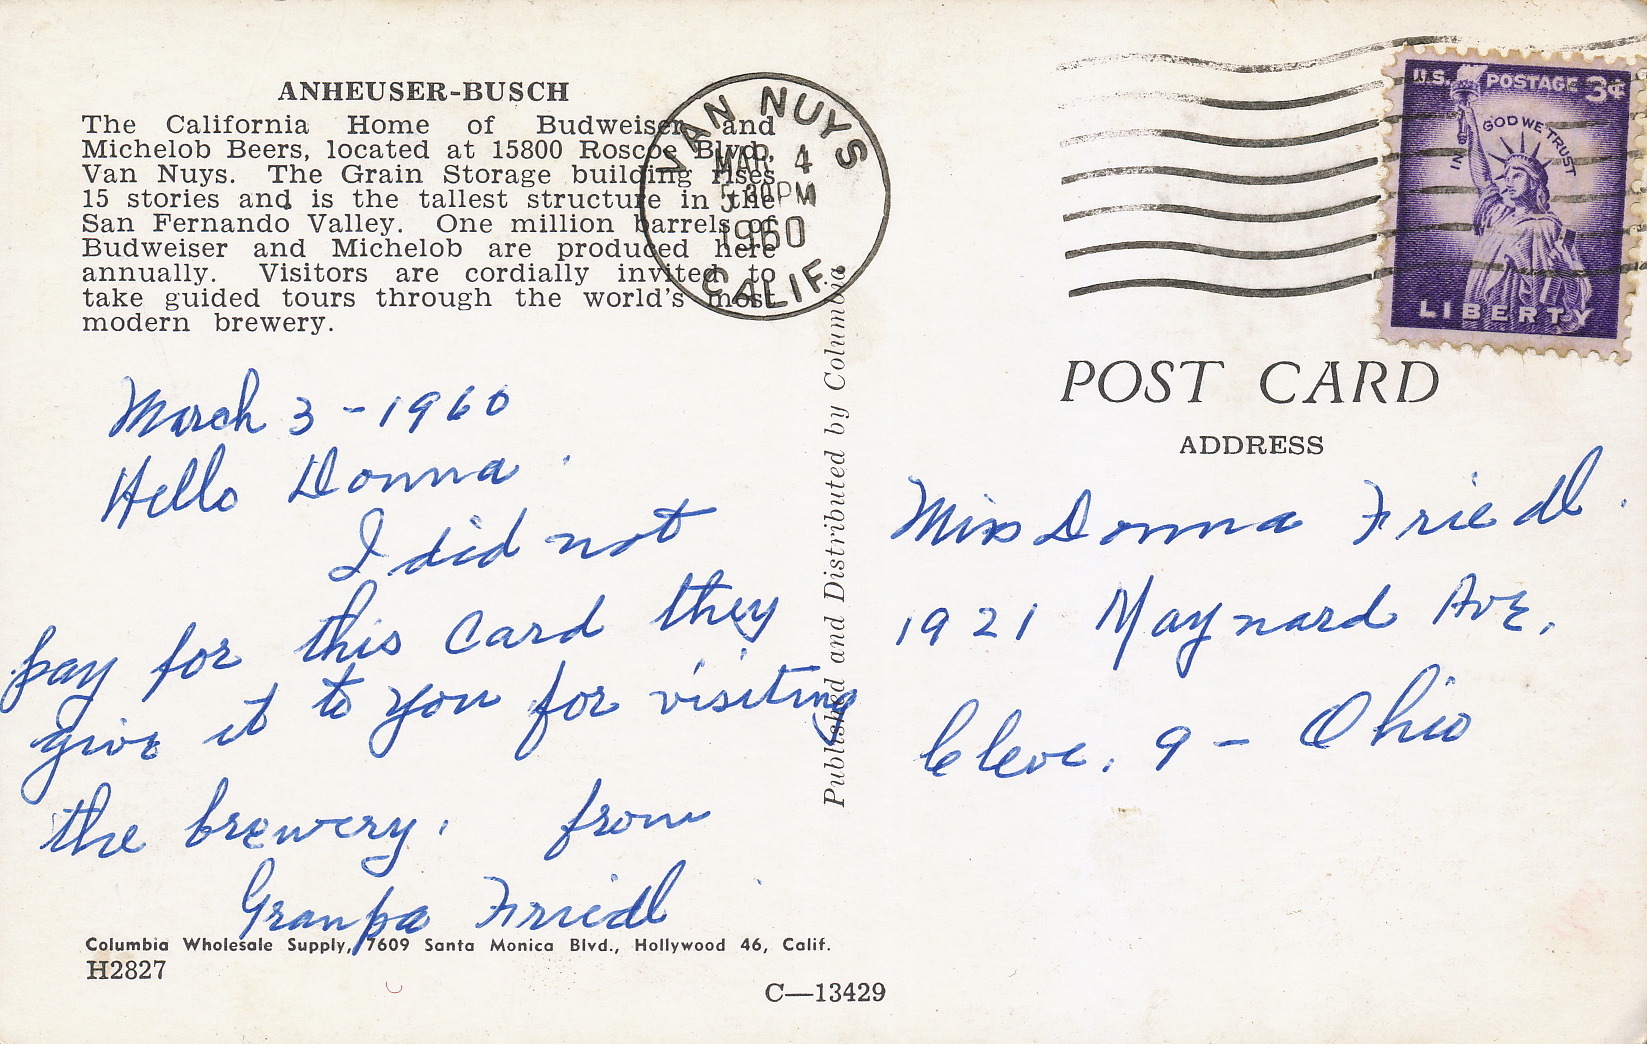 ANHEUSER-BUSCH
The California Home of Budweiser and
Michelob Beers, located at 15800 Roscoe Blvd.,
Van Nuys. The Grain Storage building rises
15 stories and is the tallest structure in the
San Fernando Valley. One million barrels of
Budweiser and Michelob are produced here
annually. Visitors are cordially invited to
take guided tours through the world's most
modern brewery.
March 3 - 1960
Hello Donna.
I did not
pay for this Card they
give it to you for visiting
the brewery. from
Granpa Friedl
Columbia Wholesale Supply, 7609 Santa Monica Blvd., Hollywood 46, Calif.
H2827
C—13429
Published and Distributed by Columbia
VAN NUYS
MAR 4
5 30 PM
1960
CALIF.
U.S. POSTAGE 3¢
IN GOD WE TRUST
LIBERTY
POST CARD
ADDRESS
Miss Donna Friedl.
1921 Maynard Ave.
Cleve. 9 - Ohio